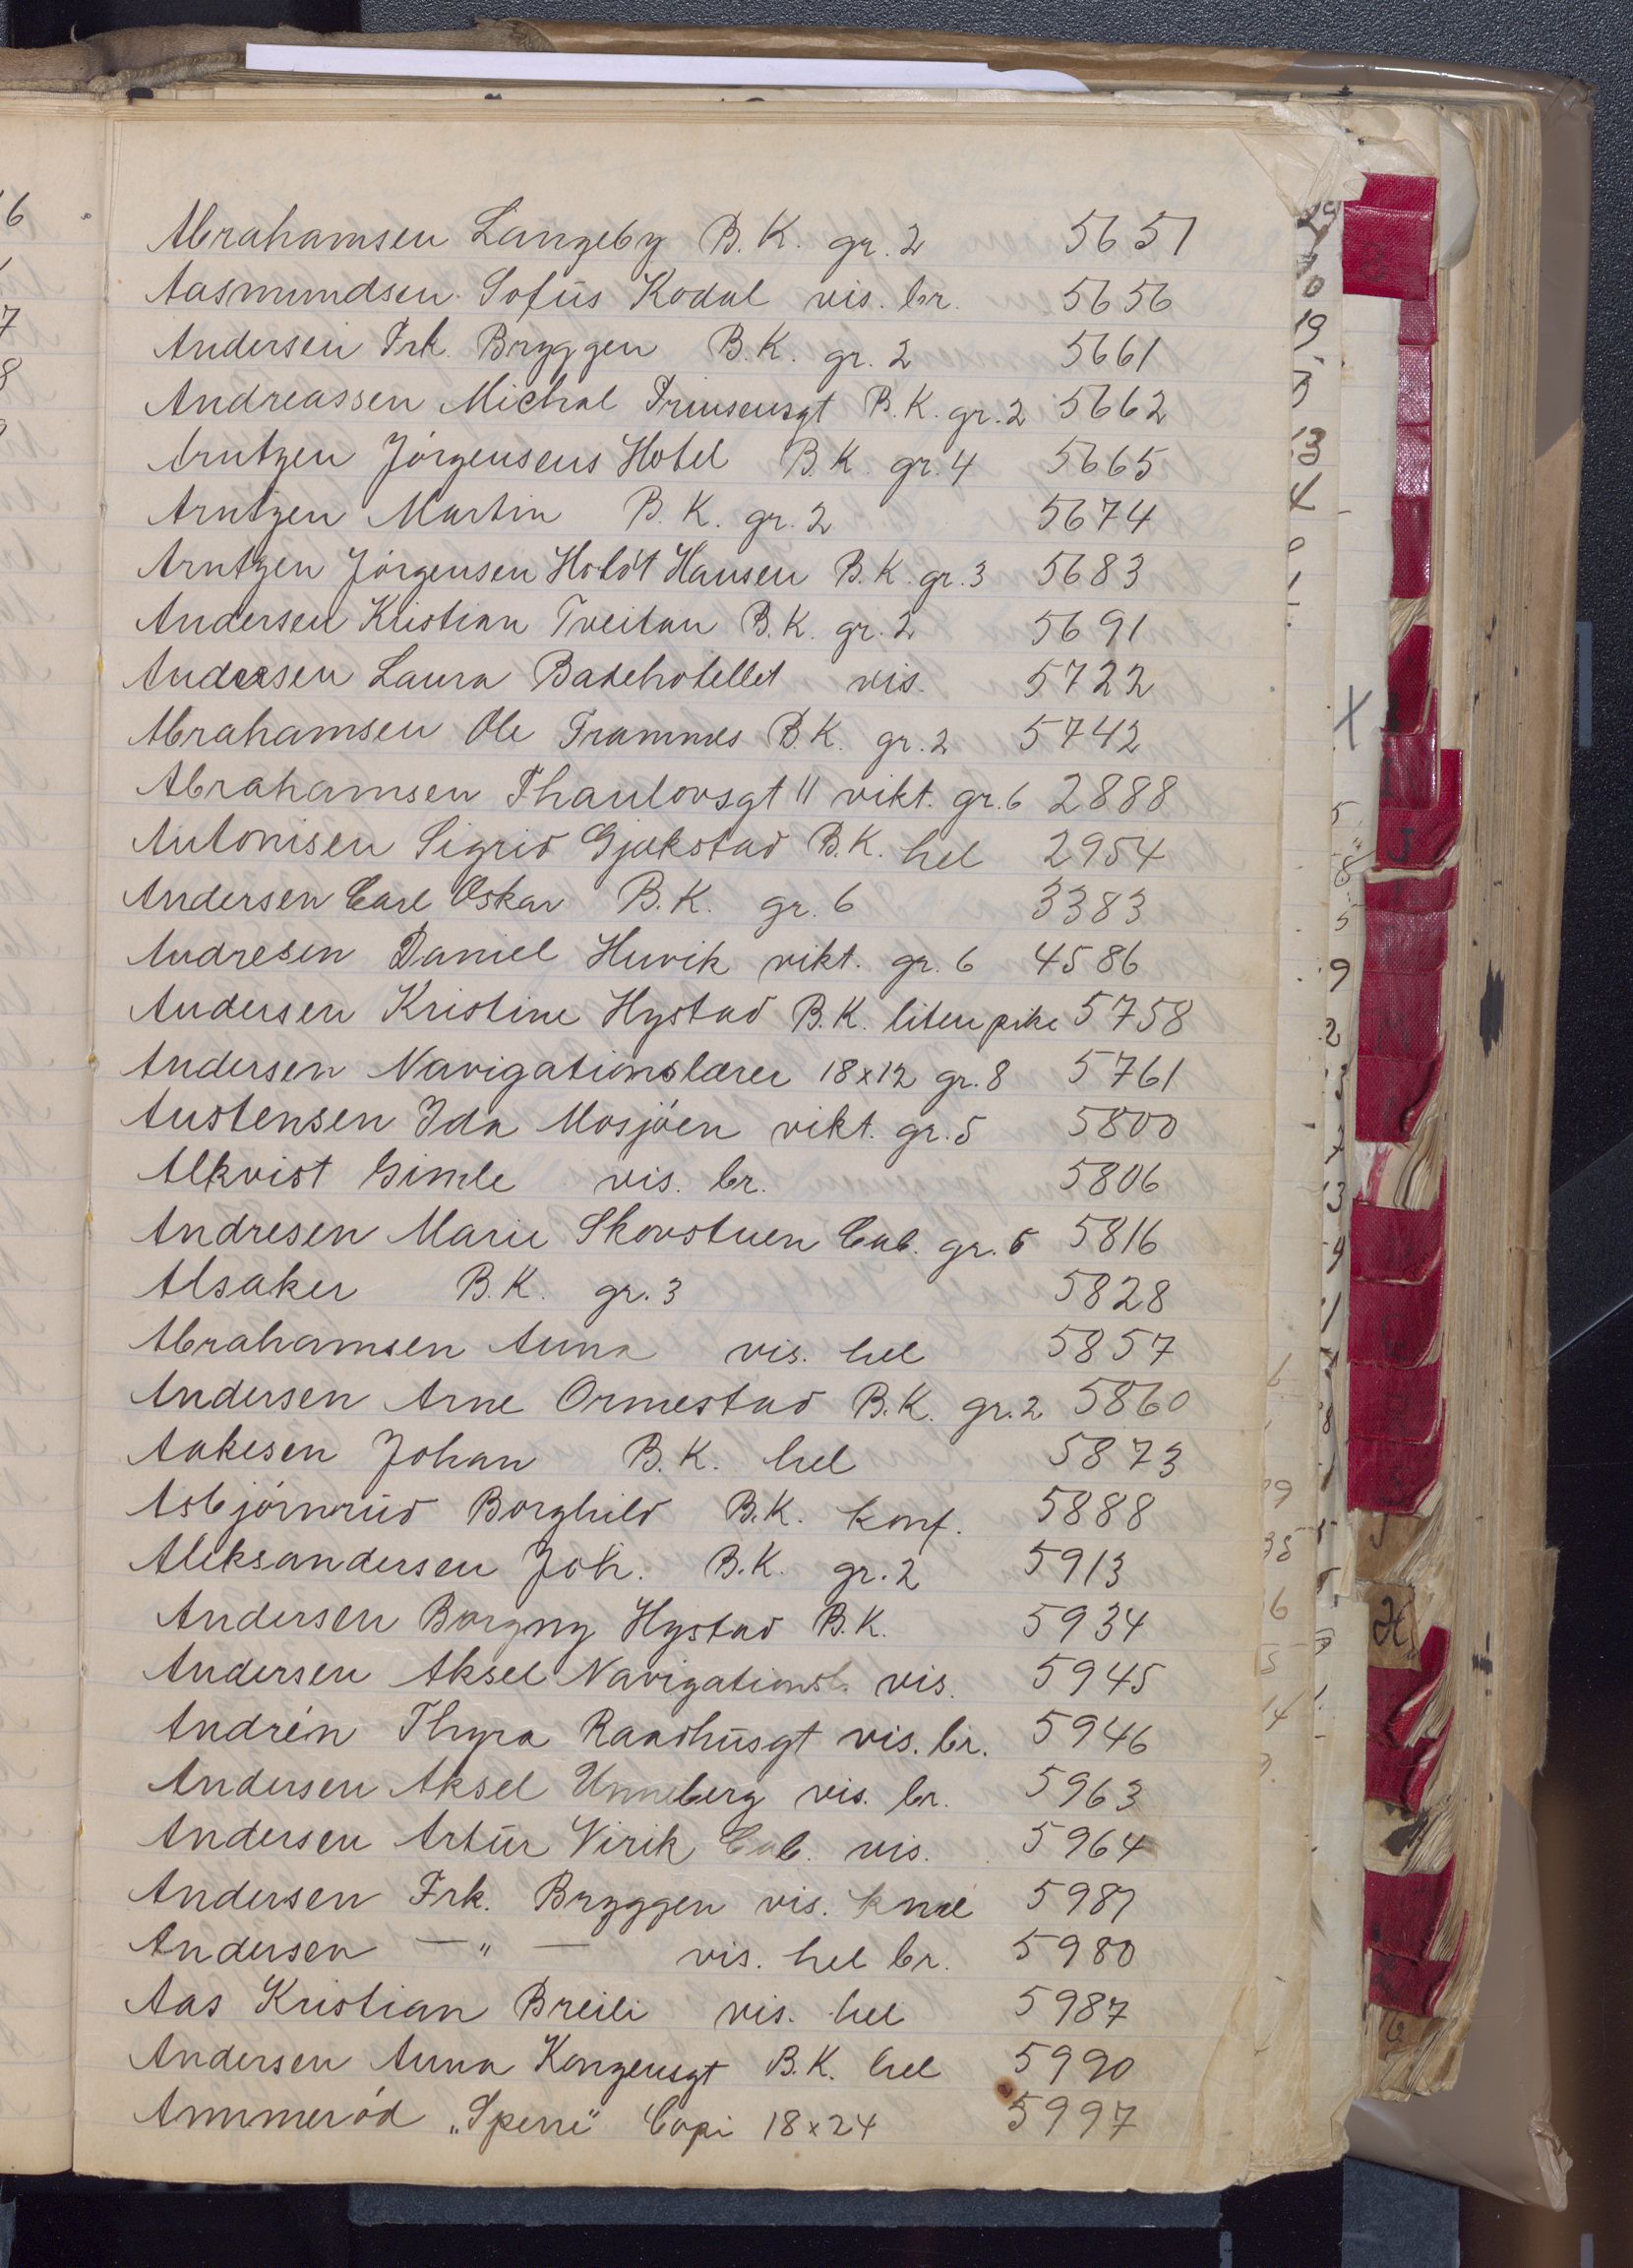 Abrahamsen Langeby B.K. gr. 2 5651
Aasmundsen Sofus Kodal vis. br. 5656
Andersen Frk. Bryggen B.K. gr. 2 5661
Andreassen Michal Prinsensgt B.K. gr. 2 5662
Arntzen Jörgensens Hotel B.K. gr. 4 5665
Arntzen Martin B.K. gr. 2 5674
Arntzen Jörgensen Holdt Hansen B.K. gr. 3 5683
Andersen Kristian Tveitan B.K. gr. 2 5691
Andersen Laura Badehotellet vis. 5722
Abrahamsen Ole Framnes B.K. gr. 2 5742
Abrahamsen Thaulovsgt 11 vikt. gr. 6 2888
Antonisen Sigrid Gjekstad B.K. hel 2954
Andersen Carl Oskar B.K. gr. 6 3383
Andresen Daniel Huvik vikt. gr. 6 4586
Andersen Kristine Hystad B.K. liten pike 5758
Andersen Navigationslærer 18x12 gr. 8 5761
Austensen Ida Mosjöen vikt. gr. 5 5800
Alkvist Gimle vis. br. 5806
Andresen Marie Skovstuen Cab. gr. 5 5816
Alsaker B.K. gr. 3 5828
Abrahamsen Anna vis. hel 5857
Andersen Arne Ormestad B.K. gr. 2 5860
Aakesen Johan B.K. hel 5873
Asbjörnrud Borghild B.K. konf. 5888
Aleksandersen Joh. B.K. gr. 2 5913
Andersen Borgny Hystad B.K. 5934
Andersen Aksel Navigationsl. vis. 5945
Andrén Thyra Raadhusgt vis. br. 5946
Andersen Aksel Unneberg vis. br. 5963
Andersen Artur Virik Cab. vis. 5964
Andersen Frk. Bryggen vis. knæ 5981
Andersen — " — vis. hel br. 5980
Aas Kristian Breili vis. hel 5987
Andersen Anna Kongensgt B.K. hel 5990
Ammeröd "Sperre" Copi 18x24 5997